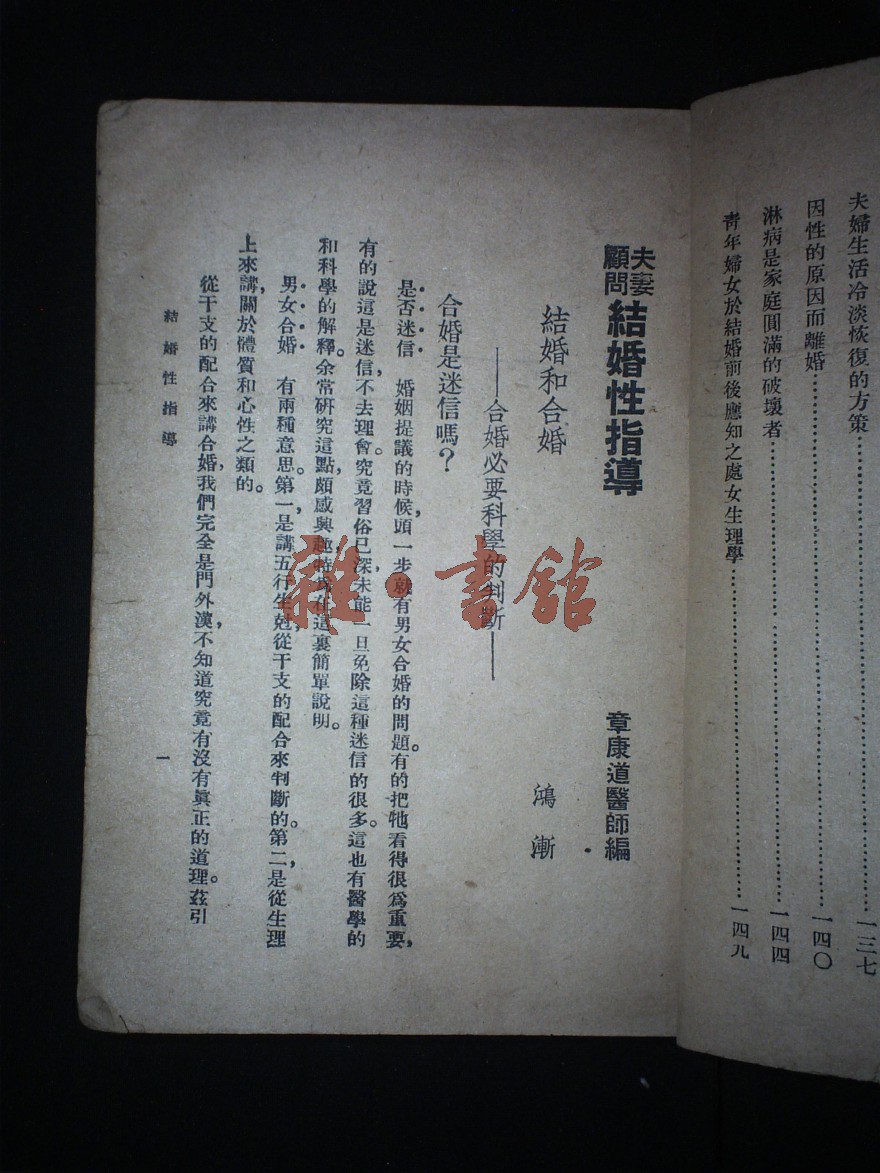 夫婦生活冷淡恢復的方策……一三七
因性的原因而離婚……一四〇
淋病是家庭圓滿的破壞者……一四四
靑年婦女於結婚前後應知之處女生理學……一四九
夫妻顧問 結婚性指導 章康道醫師編
結婚和合婚 鴻漸
——合婚必要科學的判斷——
合婚是迷信嗎?
是否迷信 婚姻提議的時候,頭一步就有男女合婚的問題。有的把牠看得很爲重要,
有的說這是迷信,不去理會。究竟習俗已深未能一旦免除這種迷信的很多。這也有醫學的
和科學的解釋。余常研究這點,頗感興趣在這裏簡單說明。
男女合婚 有兩種意思。第一,是講五行生尅從干支的配合來判斷的。第二,是從生理
上來講,關於體質和心性之類的。
從干支的配合來講合婚,我們完全是門外漢,不知道究竟有沒有眞正的道理。茲引
結婚性指導
一
雜·書館